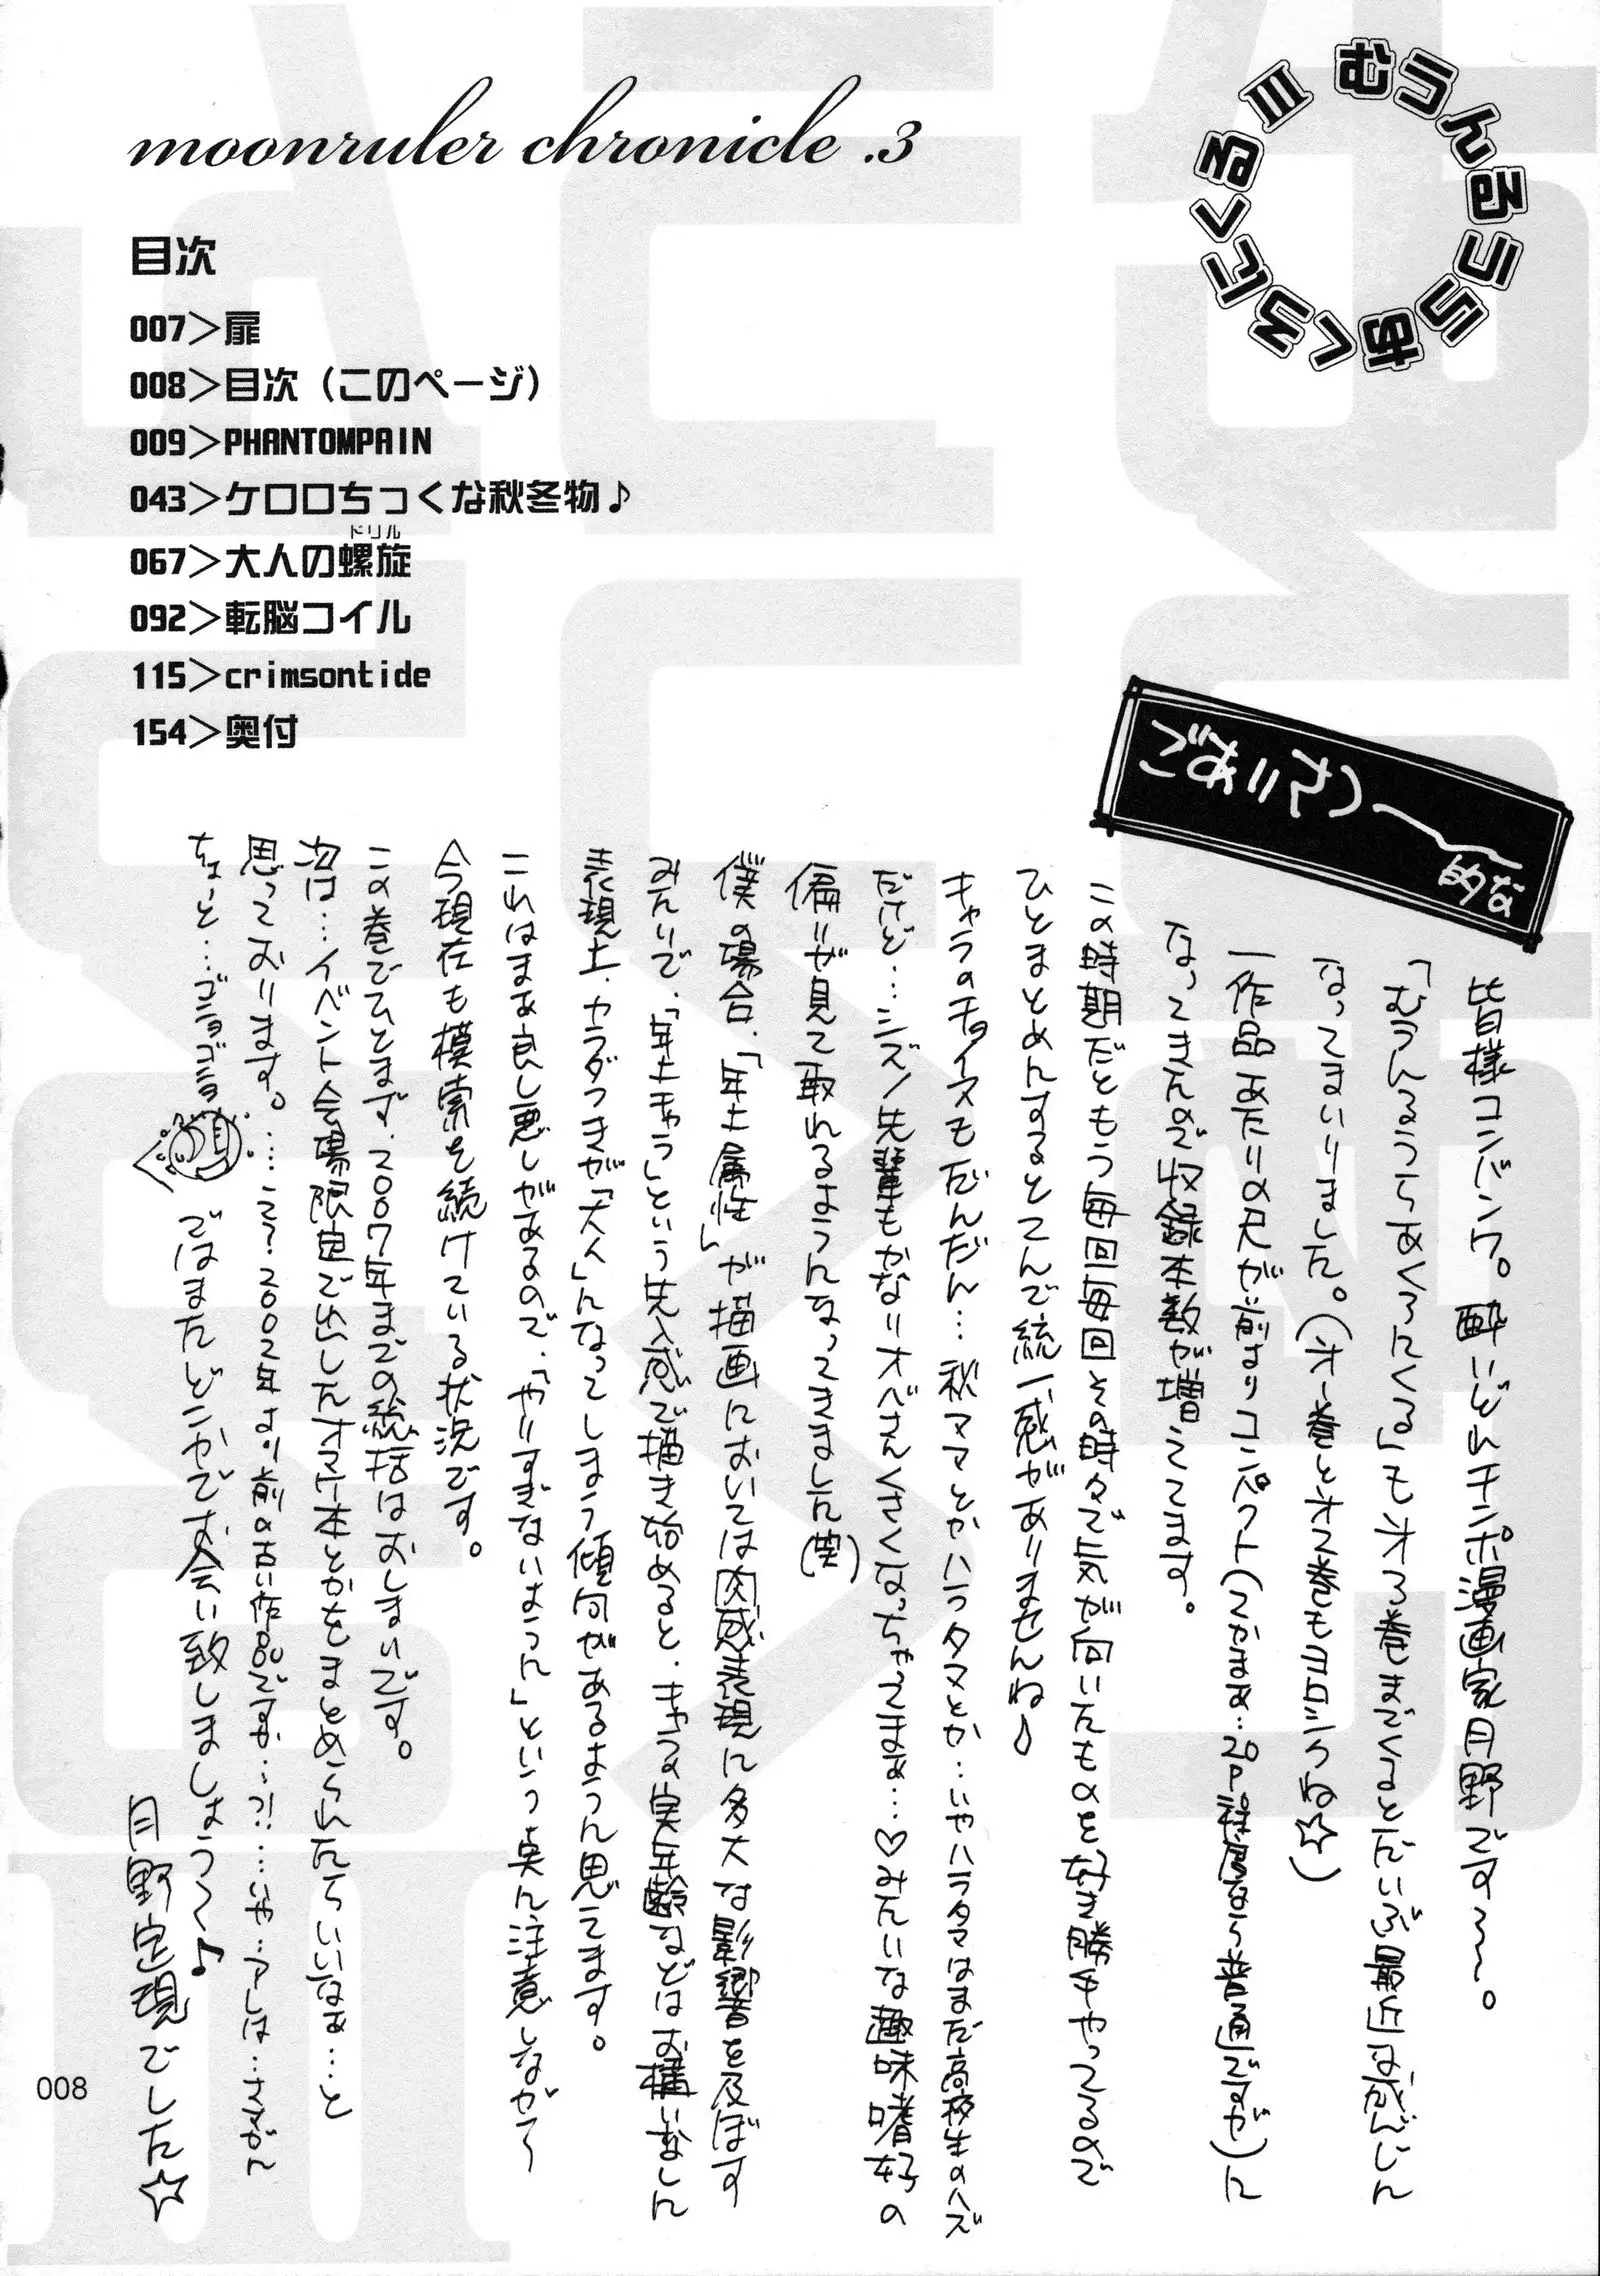 moonruler chronicle .3
むうんるうらあくろにくる III
目次
007＞扉
008＞目次（このページ）
009＞PHANTOMPAIN
043＞ケロロちっくな秋冬物♪
067＞大人の螺旋
ドリル
092＞転脳コイル
115＞crimsontide
154＞奥付
ごあいさつー的な
皆様コンバンワ。酔いどれチンポ漫画家月野です〜〜。
「むうんるうらあくろにくる」もオフ巻までくるとだいぶ最近な感じに
なってまいりました。
一作品あたりの尺が前よりコンパクト(つかまぁ‥20p程度なら普通ですが)に
なってきたので収録本数が増えてます。
この時期だともう毎回毎回その時々で気が向いたものを好き勝手やってるので
ひとまとめにするとてんで統一感がありませんね♪
キャラのチョイスもだんだん…秋ママとかハラタマとか…いやハラタマはまだ高校生のハズ
だけど…シズノ先輩もかなりオバさんくさくなっちゃってまぁ…♡みたいな趣味嗜好の
偏りが見て取れるようになってきました(笑)
僕の場合、「年上属性」が描画においては肉感表現に多大な影響を及ぼす
みたいで、「年上キャラ」という先入感で描き始めると、キャラの実年齢などはお構いなしに
表現上、カラダつきが「大人」になってしまう傾向があるように思えてます。
これはまぁ良し悪しがあるので、「やりすぎないように」という実に注意しながら
今現在も模索を続けている状況です。
この巻でひとまず、2007年までの総括はおしまいです。
次は…イベント会場限定で出したオマケ本とかをまとめられたらいいなぁ…と
思っております。…えっ?2002年より前の古い作品ですか…?!…いや‥アレは…さすがに
ちょーと…ゴニョゴニョ
ではまたどこかでお会い致しましょう〜♪
月野定規でした☆
008